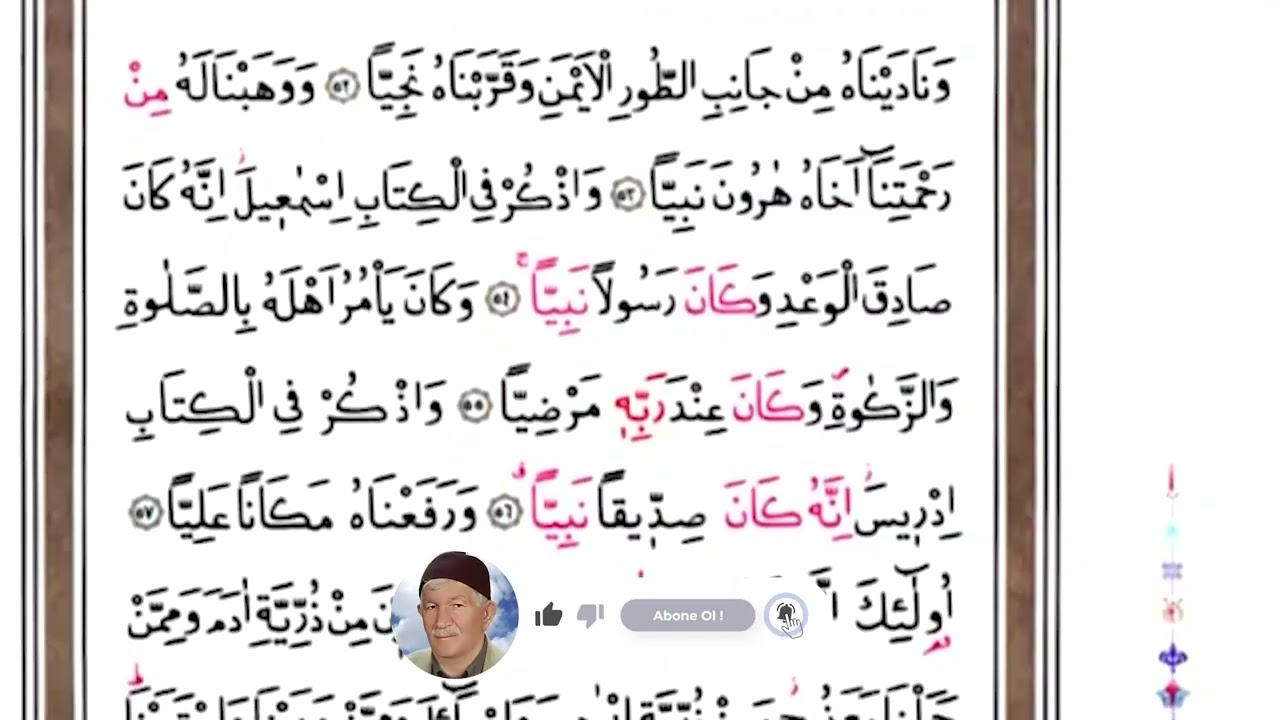 وَنَادَيْنَاهُ مِنْ جَانِبِ الطُّورِ الْاَيْمَنِ وَقَرَّبْنَاهُ نَجِيًّا ٥٢ وَوَهَبْنَا لَهُ مِنْ
رَحْمَتِنَٓا اَخَاهُ هٰرُونَ نَبِيًّا ٥٣ وَاذْكُرْ فِي الْكِتَابِ اِسْمٰعٖيلَۘ اِنَّهُ كَانَ
صَادِقَ الْوَعْدِ وَكَانَ رَسُولًا نَبِيًّاۚ ٥٤ وَكَانَ يَأْمُرُ اَهْلَهُ بِالصَّلٰوةِ
وَالزَّكٰوةِۖ وَكَانَ عِنْدَ رَبِّهٖ مَرْضِيًّا ٥٥ وَاذْكُرْ فِي الْكِتَابِ
اِدْرٖيسَۘ اِنَّهُ كَانَ صِدّٖيقًا نَبِيًّاۗ ٥٦ وَرَفَعْنَاهُ مَكَانًا عَلِيًّا ٥٧
اُو۬لٰٓئِكَ مِنْ ذُرِّيَّةِ اٰدَمَ وَمِمَّنْ
Abone Ol !